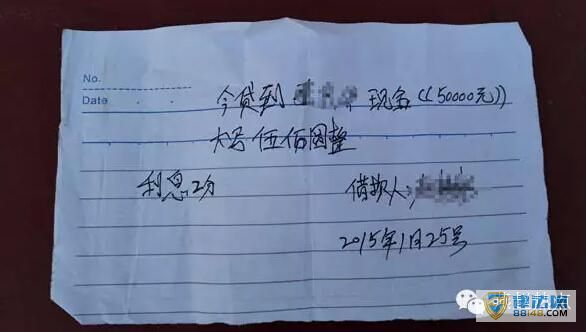 No.
今贷到 现金((50000元))
Date
大写伍佰圆整
利息2分 借款人:
2015年1月25号
88148.com